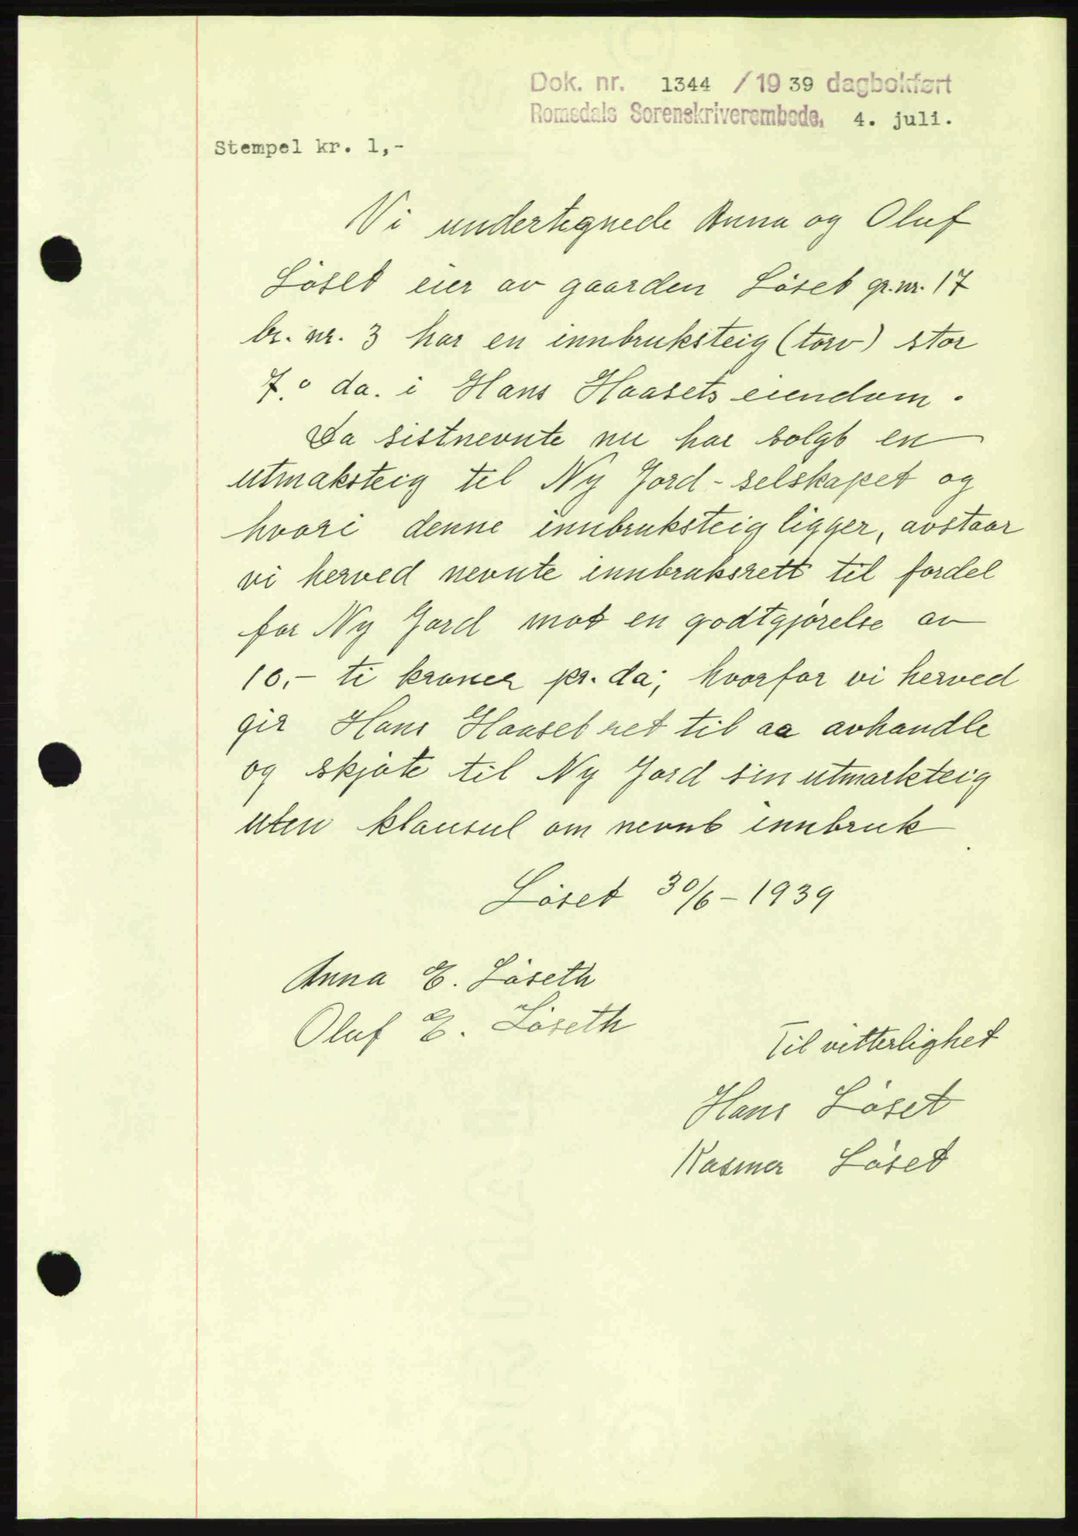 Dok. nr. 1344 / 1939 dagbokført
Romsdals Sorenskriverembede, 4. juli.
Stempel kr. 1,-
Vi undertegnede Anna og Oluf
Løset eier av gaarden Løset gr. nr. 17
br. nr. 3 har en innbruksteig (torv) stor
7.⁰ da. i Hans Haasets eiendom.
Da sistnevnte nu har solgt en
utmaksteig til Ny Jord-selskapet og
hvori denne innbruksteig ligger, avstaar
vi herved nevnte innbruksrett til fordel
for Ny Jord mot en godtgjørelse av
10,- ti kroner pr. da; hvorfor vi herved
gir Hans Haaset ret til aa avhandle
og skjøte til Ny Jord sin utmarkteig
uten klausul om nevnt innbruk.
Løset 30/6 - 1939
Anna E. Løseth
Oluf E. Løseth
Til vitterlighet
Hans Løset
Rasmer Løset